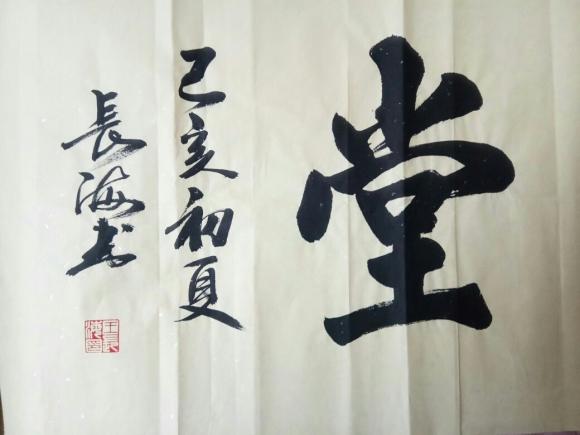 堂
己亥初夏
長海书